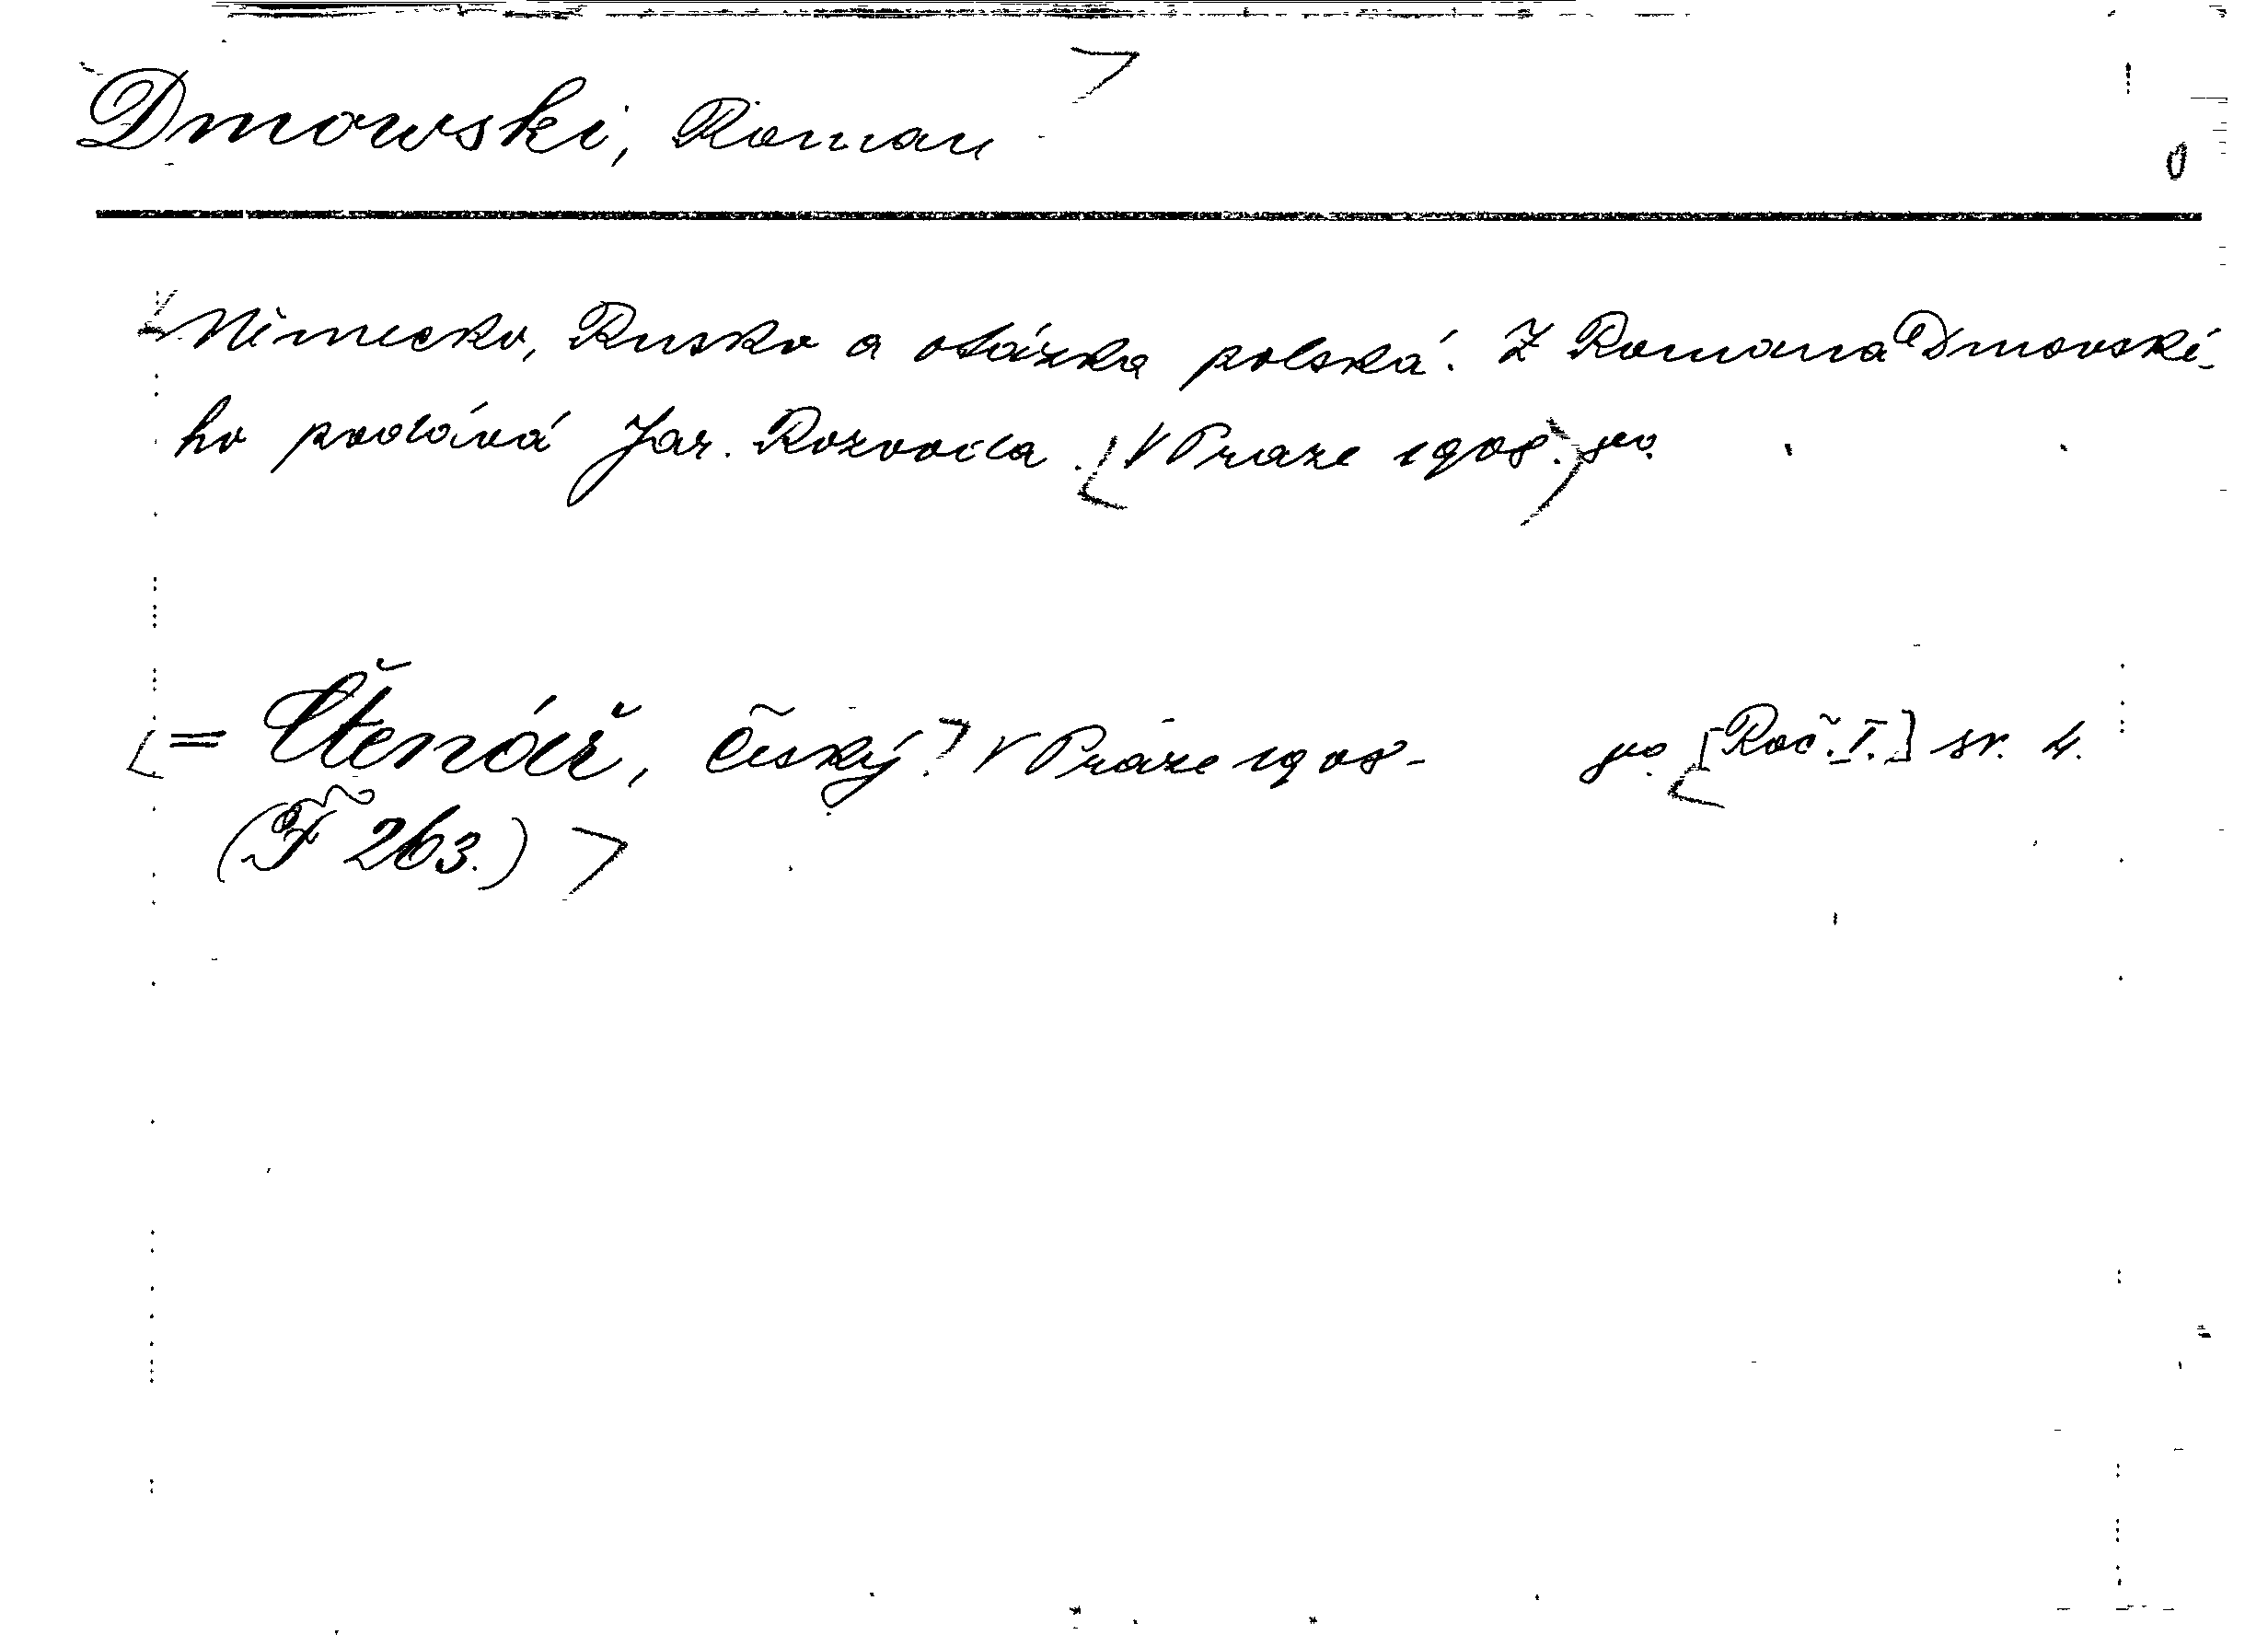 Dmowski, Roman
Německo, Rusko a otázka polská. Z Romana Dmovské-
ho podává Jar. Rozvoda. V Praze 1908. 8vo.
= Čtenář, český. V Praze 1908- 8vo. [Roč. I.] sv. 4.
(F 263.)